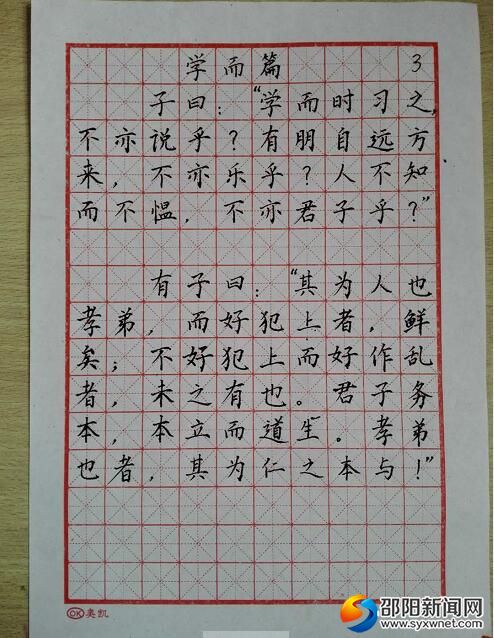 学而篇 3
子曰："学而时习之,
不亦说乎？有朋自远方
来，不亦乐乎？人不知
而不愠，不亦君子乎？"
有子曰："其为人也
孝弟，而好犯上者，鲜
矣；不好犯上而好作乱
者，未之有也。君子务
本，本立而道生。孝弟
也者，其为仁之本与！"
OK 奥凯
邵阳新闻网
www.syxwnet.com